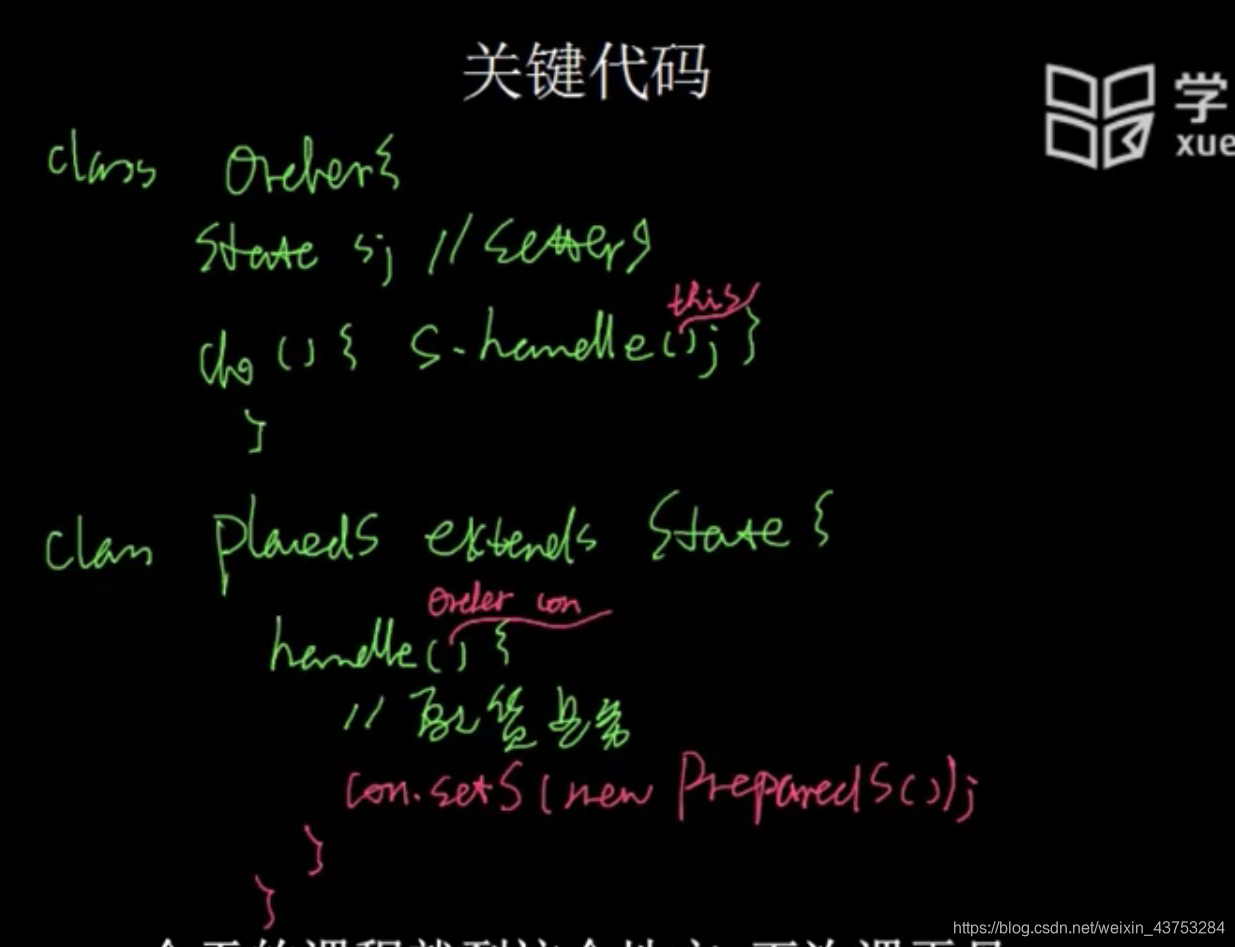 关键代码
学
xue
class Order{
State s; // setter
this
do () { s.handle(); }
}
class placedS extends State {
Order con
handle() {
// 配货业务
con.setS(new PreparedS());
}
}
https://blog.csdn.net/weixin_43753284